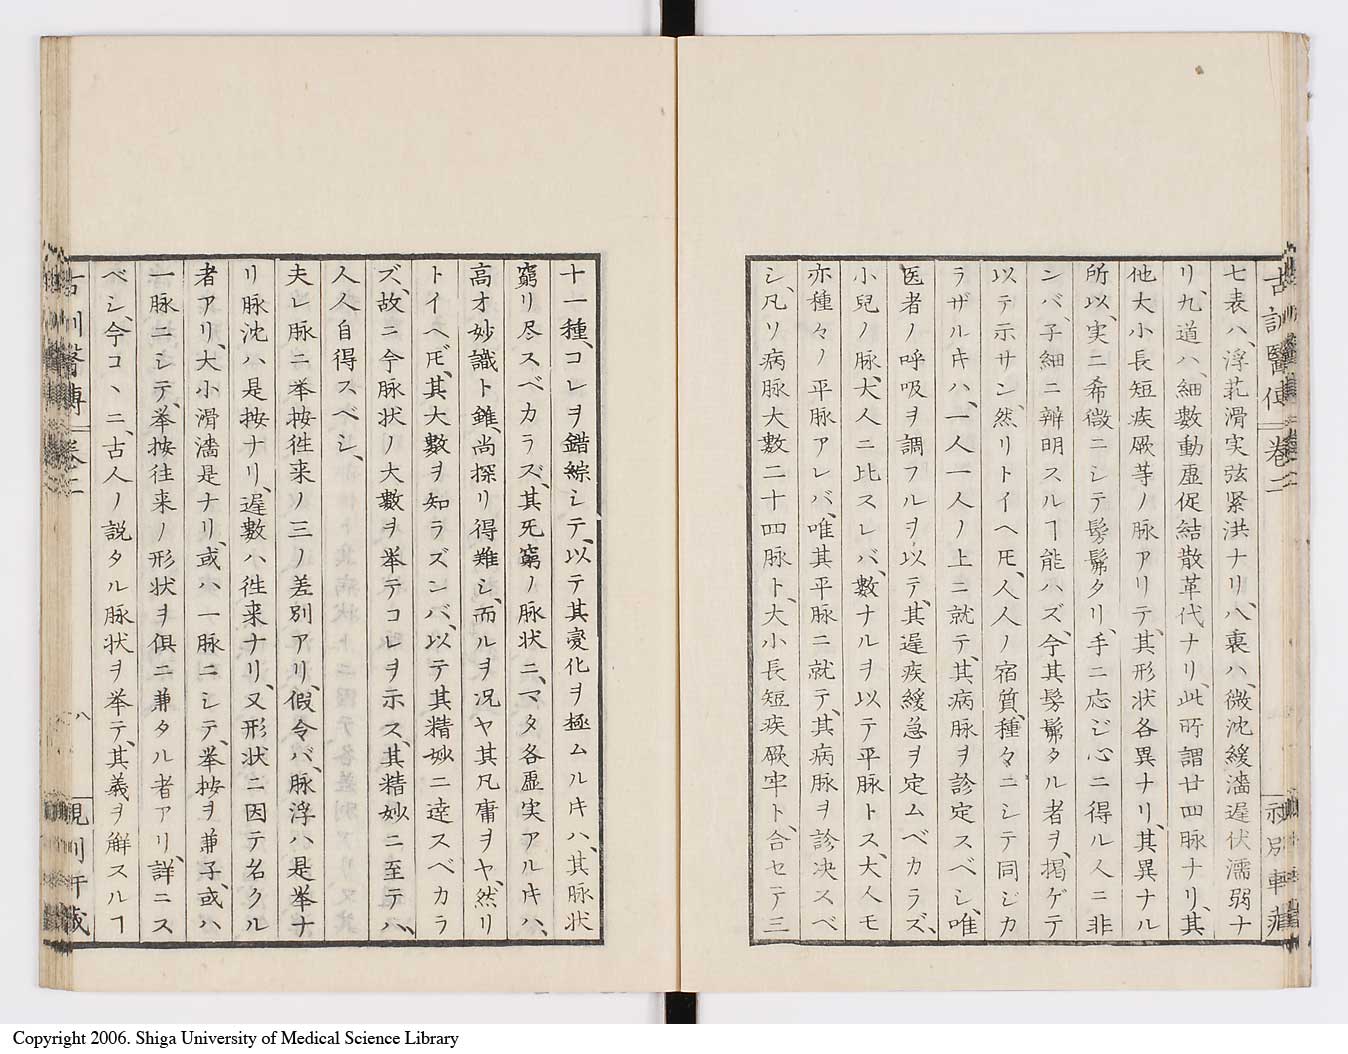 古訓醫傳 卷二
七表ハ、浮芤滑実弦緊洪ナリ、八裏ハ、微沈緩濇遅伏濡弱ナ
リ、九道ハ、細數動虚促結散革代ナリ、此所謂廿四脉ナリ、其
他大小長短疾厥等ノ脉アリテ、其形状各異ナリ、其異ナル
所以、実ニ希微ニシテ髣髴タリ、手ニ応ジ心ニ得ル人ニ非
ンバ、子細ニ辨明スルヿ能ハズ、今其髣髴タル者ヲ、掲ゲテ
以テ示サン、然リトイヘ𪜈、人人ノ宿質、種々ニシテ同ジカ
ラザルキハ、一人一人ノ上ニ就テ、其病脉ヲ診定スベシ、唯
医者ノ呼吸ヲ調フルヲ以テ、其遅疾緩急ヲ定ムベカラズ、
小兒ノ脉、大人ニ比スレバ、數ナルヲ以テ平脉トス、大人モ
亦種々ノ平脉アレバ、唯其平脉ニ就テ、其病脉ヲ診决スベ
シ、凡ソ病脉大數二十四脉ト、大小長短疾厥牢ト、合セテ三
十一種、コレヲ錯綜シテ、以テ其変化ヲ極ムルキハ、其脉状
窮リ尽スベカラズ、其死窮ノ脉状ニ、マタ各虚実アルキハ、
高才妙識ト雖、尚探リ得難シ、而ルヲ况ヤ其凡庸ヲヤ、然リ
トイヘ𪜈、其大數ヲ知ラズンバ、以テ其精妙ニ達スベカラ
ズ、故ニ今脉状ノ大數ヲ挙テコレヲ示ス、其精妙ニ至テハ、
人人自得スベシ、
夫レ脉ニ挙按徃来ノ三ノ差別アリ、假令バ、脉浮ハ是挙ナ
リ脉沈ハ是按ナリ、遅數ハ徃来ナリ、又形状ニ因テ名クル
者アリ、大小滑濇是ナリ、或ハ一脉ニシテ、挙按ヲ兼子、或ハ
一脉ニシテ、挙按往来ノ形状ヲ俱ニ兼タル者アリ、詳ニス
ベシ、今コヽニ、古人ノ説タル脉状ヲ挙テ、其義ヲ解スルヿ
卷二
八
Copyright 2006. Shiga University of Medical Science Library